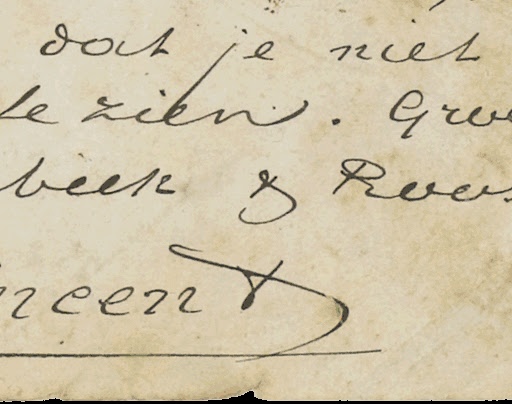 dat je niet
te zien. Groe
beek & Roos
incent